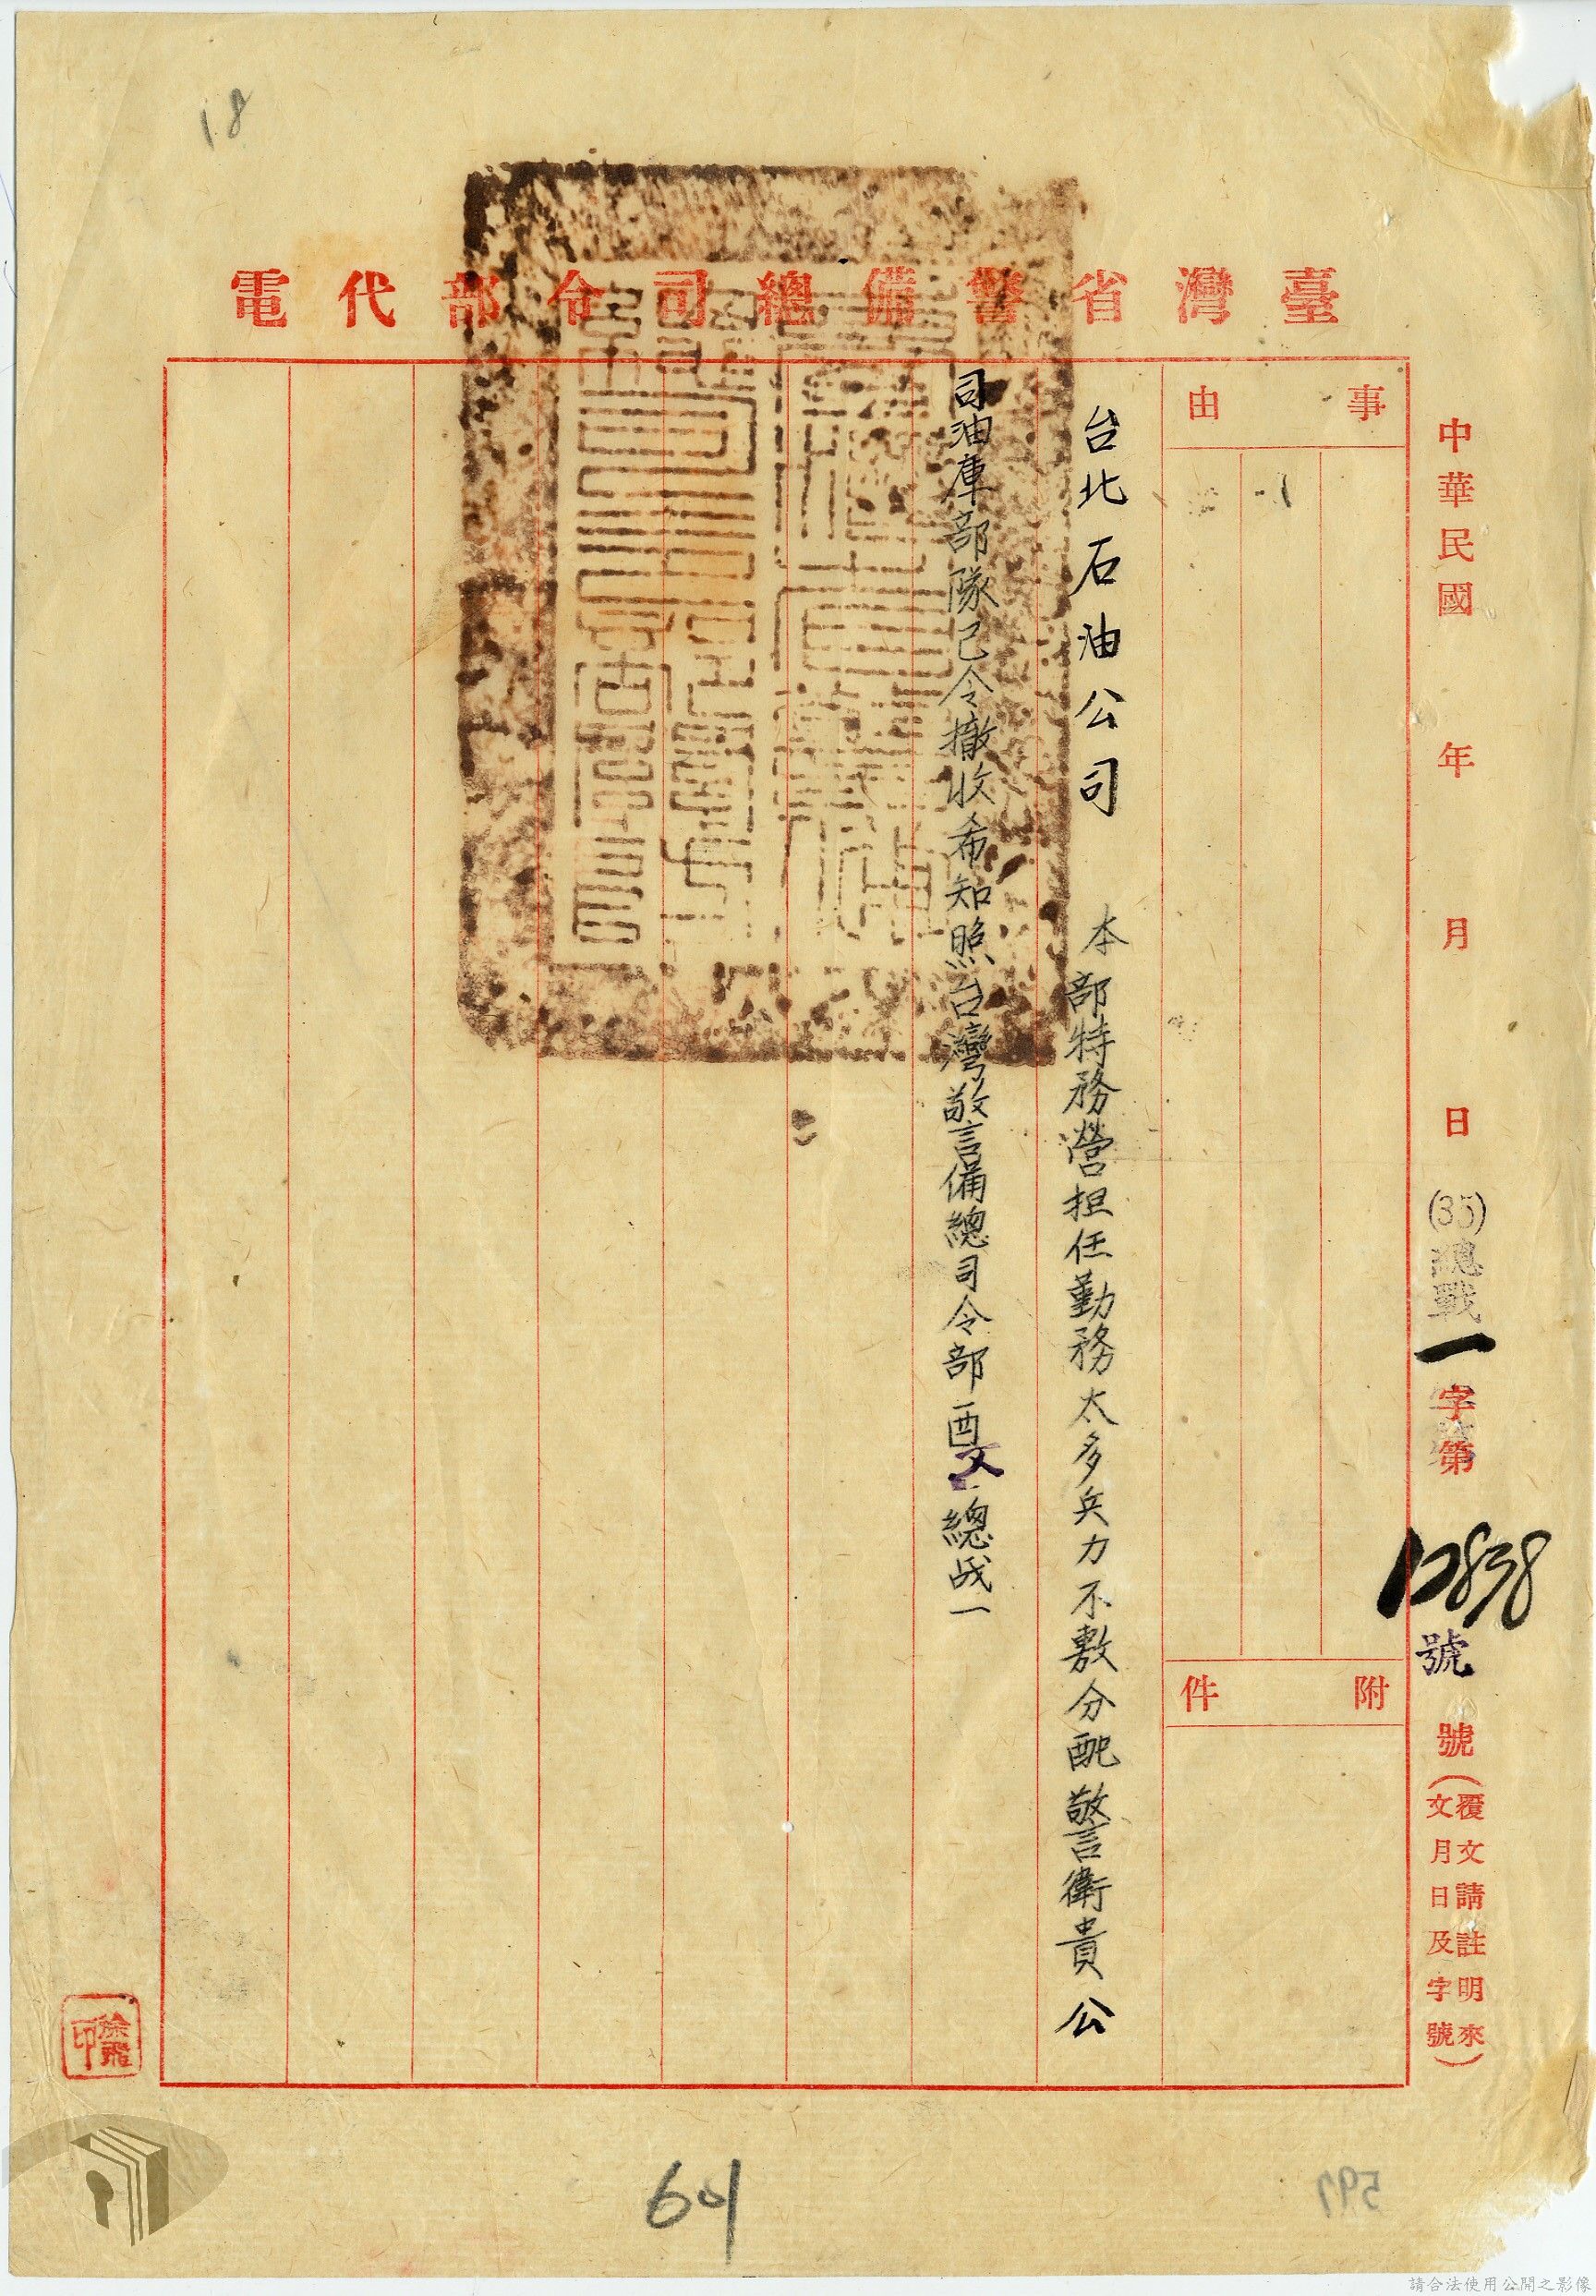 18
臺灣省警備總司令部代電
中華民國 年 月 日 (35)總戰一字第12838號 號(覆文請註明來文月日及字號)
事由
附件
台北石油公司 本部特務營担任勤務太多兵力不敷分配警衛貴公
司油庫部隊已令撤收希知照台灣警備總司令部酉文總战一
601
597
請合法使用公開之影像